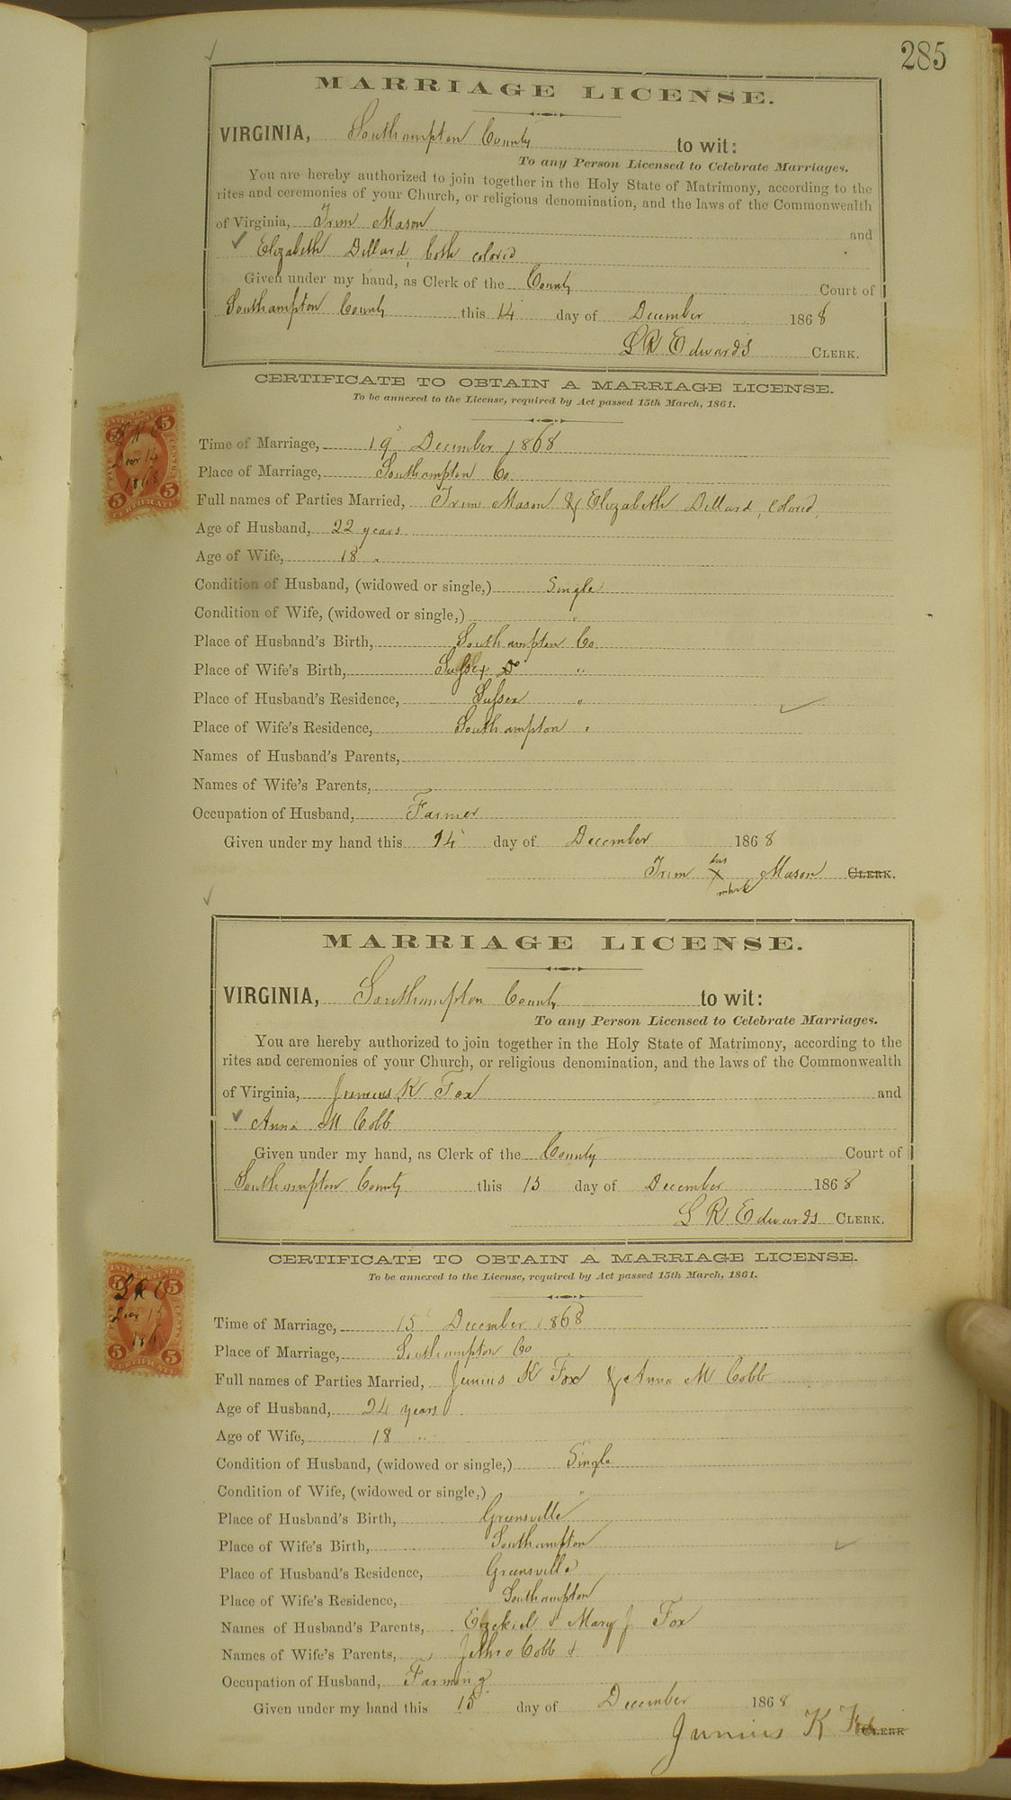 285
MARRIAGE LICENSE.
VIRGINIA, Southampton County to wit:
To any Person Licensed to Celebrate Marriages.
You are hereby authorized to join together in the Holy State of Matrimony, according to the
rites and ceremonies of your Church, or religious denomination, and the laws of the Commonwealth
of Virginia, Trim Mason and
Elizabeth Dillard, both colored
Given under my hand, as Clerk of the County Court of
Southampton County this 14 day of December 1868
L R Edwards CLERK.
CERTIFICATE TO OBTAIN A MARRIAGE LICENSE.
To be annexed to the License, required by Act passed 15th March, 1861.
Time of Marriage, 19 December 1868
Place of Marriage, Southampton Co.
Full names of Parties Married, Trim Mason & Elizabeth Dillard, Colored.
Age of Husband, 22 years
Age of Wife, 18 "
Condition of Husband, (widowed or single,) Single
Condition of Wife, (widowed or single,) "
Place of Husband's Birth, Southampton Co.
Place of Wife's Birth, Sussex Do "
Place of Husband's Residence, Sussex "
Place of Wife's Residence, Southampton "
Names of Husband's Parents,
Names of Wife's Parents,
Occupation of Husband, Farmer
Given under my hand this 14 day of December 1868
his
Trim X Mason CLERK.
mark
MARRIAGE LICENSE.
VIRGINIA, Southampton County to wit:
To any Person Licensed to Celebrate Marriages.
You are hereby authorized to join together in the Holy State of Matrimony, according to the
rites and ceremonies of your Church, or religious denomination, and the laws of the Commonwealth
of Virginia, Junius K Fox and
Anna M Cobb
Given under my hand, as Clerk of the County Court of
Southampton County this 15 day of December 1868
L R Edwards CLERK.
CERTIFICATE TO OBTAIN A MARRIAGE LICENSE.
To be annexed to the License, required by Act passed 15th March, 1861.
Time of Marriage, 15 December 1868
Place of Marriage, Southampton Co
Full names of Parties Married, Junius K Fox & Anna M Cobb
Age of Husband, 24 years
Age of Wife, 18 "
Condition of Husband, (widowed or single,) Single
Condition of Wife, (widowed or single,) "
Place of Husband's Birth, Greensville
Place of Wife's Birth, Southampton
Place of Husband's Residence, Greensville
Place of Wife's Residence, Southampton
Names of Husband's Parents, Ezekiel & Mary J Fox
Names of Wife's Parents, Jethro Cobb &
Occupation of Husband, Farming
Given under my hand this 15 day of December 1868
Junius K Fox CLERK